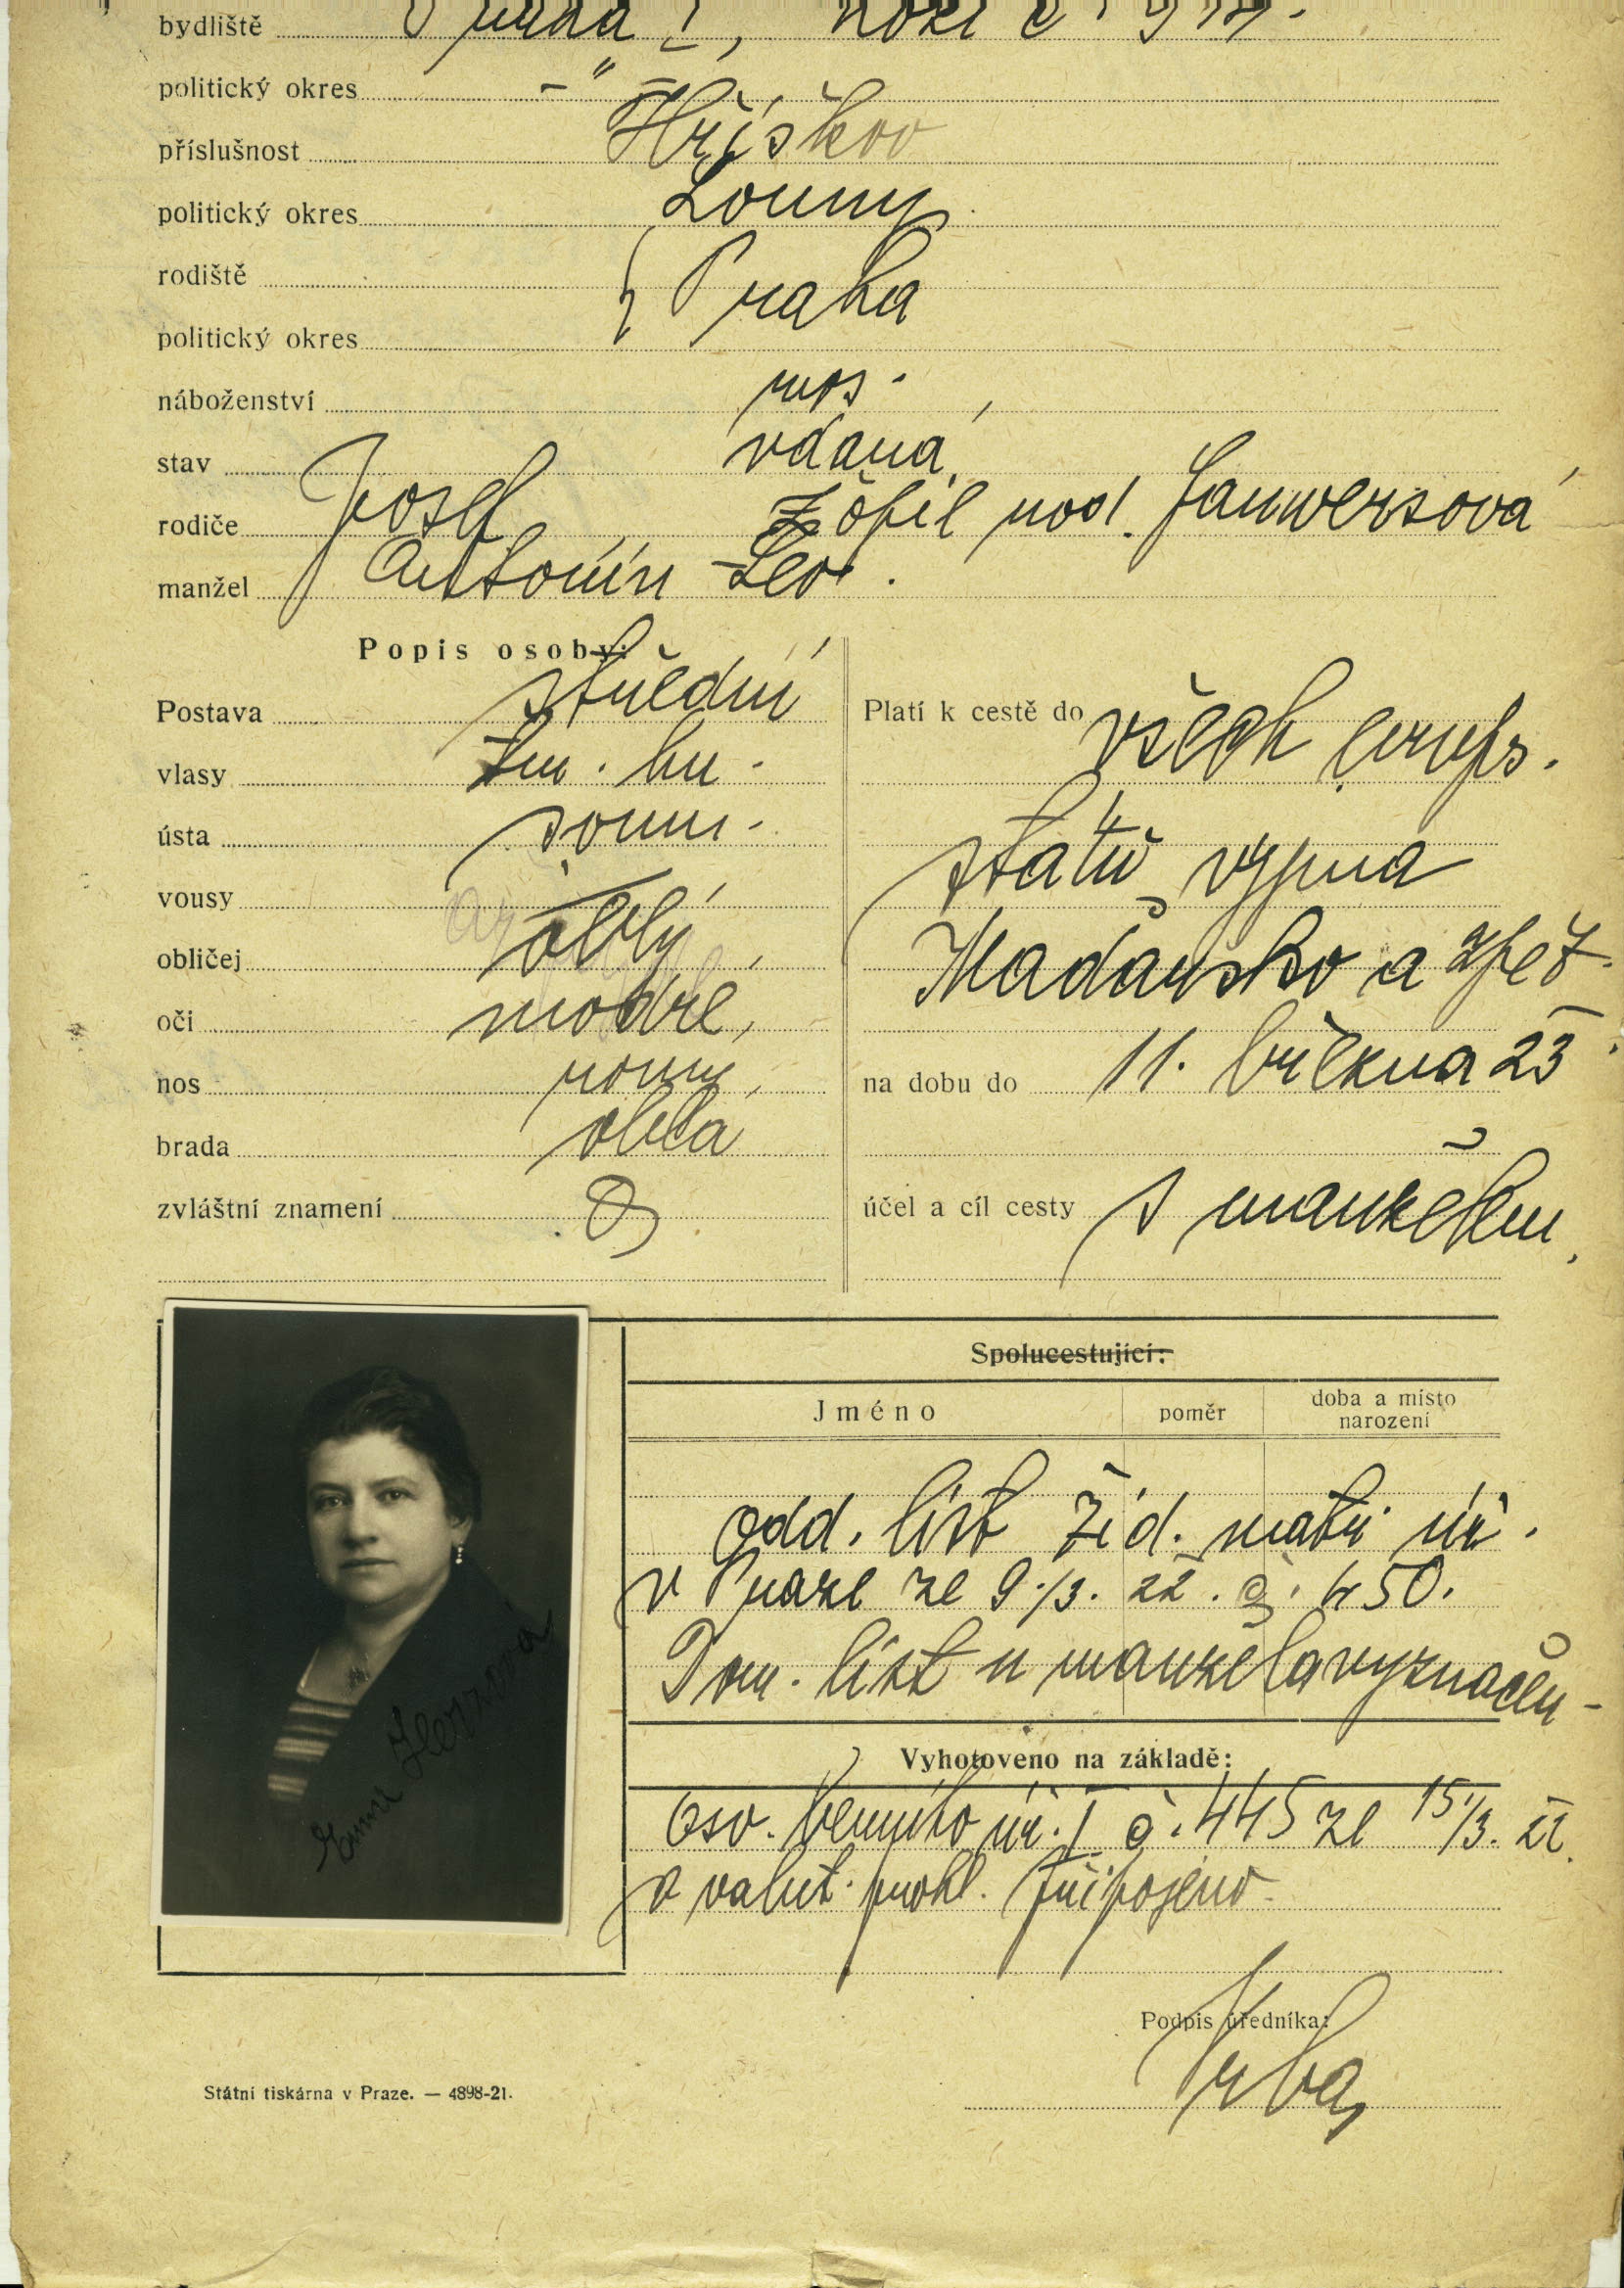 bydliště Praha I,
politický okres – " –
příslušnost Hříškov
politický okres Louny
rodiště } Praha
politický okres
náboženství mos.
stav vdaná
rodiče Josef Žofie roz.
manžel Antonín Leo.
Popis osoby:
Postava střední
vlasy tm. hn.
ústa soum.
vousy —
obličej oblý
oči modré
nos rovný
brada oblá
zvláštní znamení
Platí k cestě do všech evrops.
států vyjma
Maďarsko a zpět.
na dobu do 11. března 23
účel a cíl cesty s manželem
Spolucestující:
Jméno poměr doba a místo narození
odd. list žid. matr. úř.
v Praze ze 9./3. 22. č. 450.
Dom. list u manžela vyznačen
Vyhotoveno na základě:
Osv. berního úř. I č. 445 ze 15./3. 22.
a valut. prohl. připojeno
Podpis úředníka:
Vrba
Státní tiskárna v Praze. — 4898-21.